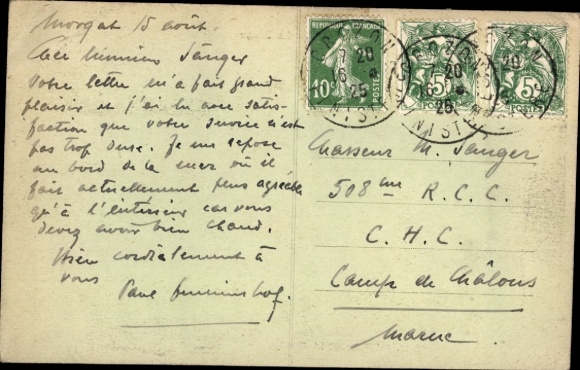 Morgat 15 août.
Cher Monsieur Sanger
Votre lettre m'a fait grand
plaisir et j'ai lu avec satis-
faction que votre service n'est
pas trop dur. Je me repose
au bord de la mer où il
fait actuellement plus agréable
qu'à l'intérieur car vous
devez avoir bien chaud.
Bien cordialement à
vous
Paul
RÉPUBLIQUE FRANÇAISE
10c
POSTES
5c
POSTES
5c
POSTES
CROZON
FINISTÈRE
7 20
16
25
Chasseur M. Sanger
508ème R.C.C.
C.H.C.
Camp de Châlons
Marne